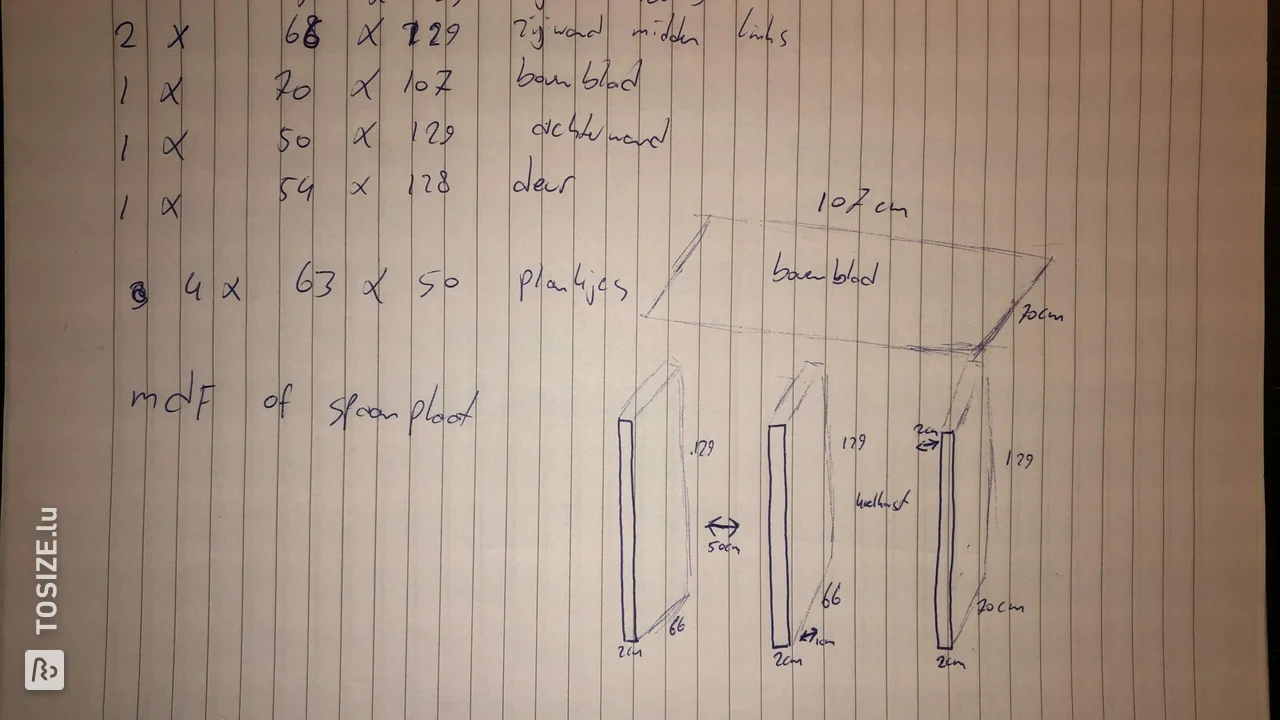 2 x 66 x 129 zijwand midden links
1 x 70 x 107 bovenblad
1 x 50 x 129 achterwand
1 x 54 x 128 deur
4 x 63 x 50 plankjes
mdF of spaanplaat
107 cm
bovenblad
70cm
129
129
2cm
129
koelkast
50cm
66
66
1cm
70cm
2cm
2cm
2cm
TOSIZE.lu